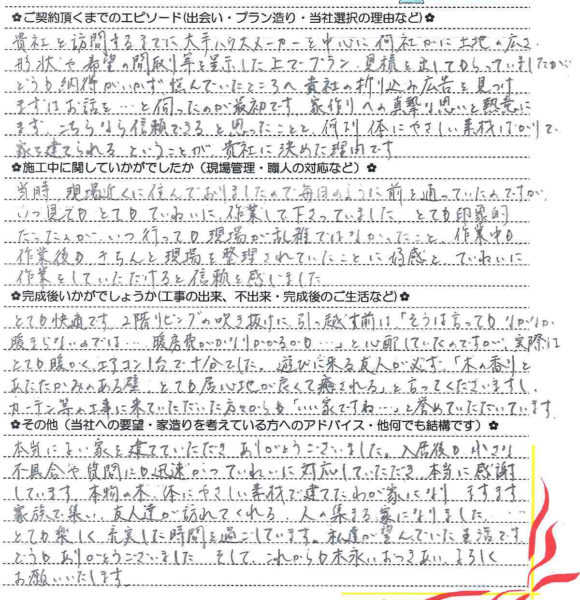 ✿ご契約頂くまでのエピソード(出会い・プラン造り・当社選択の理由など)✿
貴社を訪問するまでに大手ハウスメーカーを中心に何社かに土地の広さ、
形状や希望の間取り等を呈示した上でプラン、見積を出してもらっていましたが
どうも納得がいかず悩んでいたところへ貴社の折り込み広告を見つけ
まずはお話を…と伺ったのが最初です 家作りへの真摯な思いと熱意に
まず、こちらなら信頼できると思ったことと、何より体にやさしい素材ばかりで
家を建てられるということが貴社に決めた理由です
✿施工中に関していかがでしたか(現場管理・職人の対応など)✿
当時、現場近くに住んでおりましたので毎日のように前を通っていたのですが、
いつ見てもとてもていねいに作業して下さっていました とても印象的
だったのが、いつ行っても現場が乱雑ではなかったこと、作業中も
作業後もきちんと現場を整理されていたことに好感と、ていねいに
作業をしていただけると信頼を感じました
✿完成後いかがでしょうか(工事の出来、不出来・完成後のご生活など)✿
とても快適です 2階リビングの吹き抜けに引っ越す前は「そうは言ってもなかなか
暖まらないのでは… 暖房費がかなりかかるかも…」と心配していたのですが、実際は
とても暖かく、エアコン1台で十分でした。遊びに来る友人が必ず、「木の香りと
あたたかみのある壁、とても居心地が良くて癒される」と言ってくださいますし、
カーテン等の工事に来ていただいた方々からも「いい家ですね…」と誉めていただいています
✿その他(当社への要望・家造りを考えている方へのアドバイス・他何でも結構です)✿
本当によい家を建てていただきありがとうございました。入居後も小さな
不具合や質問にも迅速かつていねいに対応していただき、本当に感謝
しています 本物の木、体にやさしい素材で建てたわが家になり、ますます
家族で集い、友人達が訪れてくれる、人の集まる家になりました……
とても楽しく充実した時間を過ごしています。私達が望んでいた生活です
どうもありがとうございました そして、これからも末永いおつきあい、よろしく
お願いいたします。